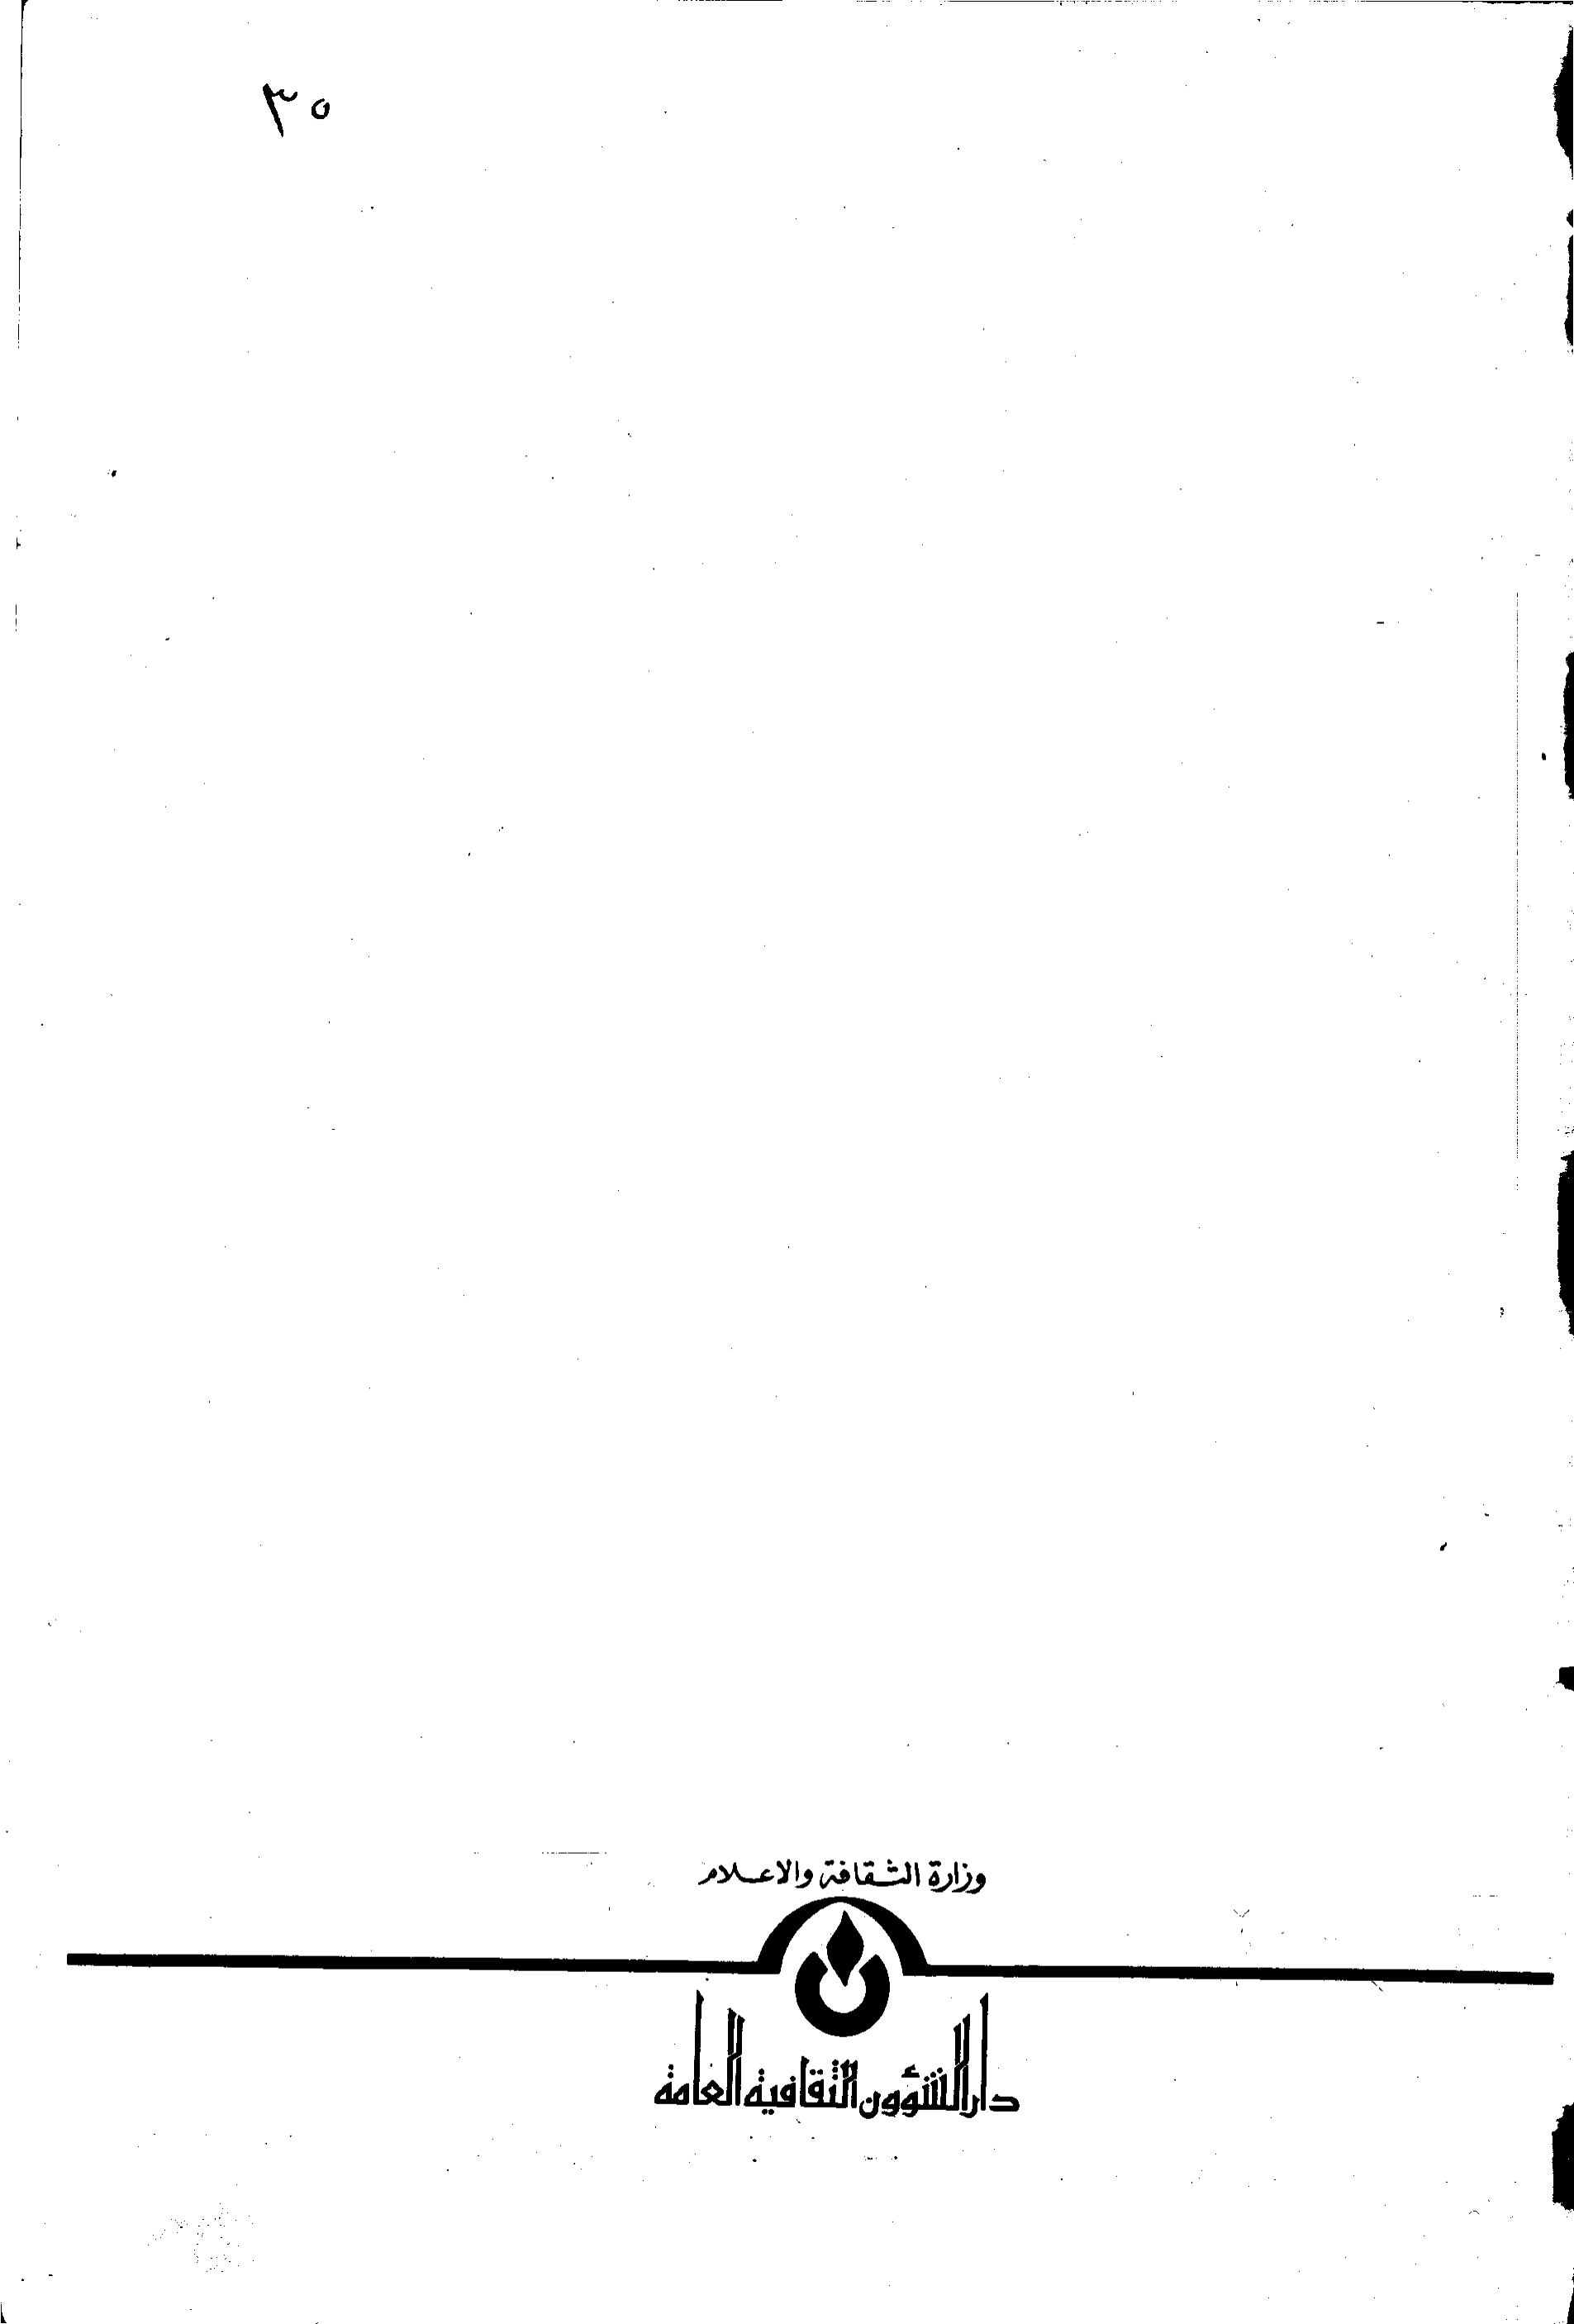 ٣٥
وزارة الثقافة والاعلام
دار الشؤون الثقافية العامة